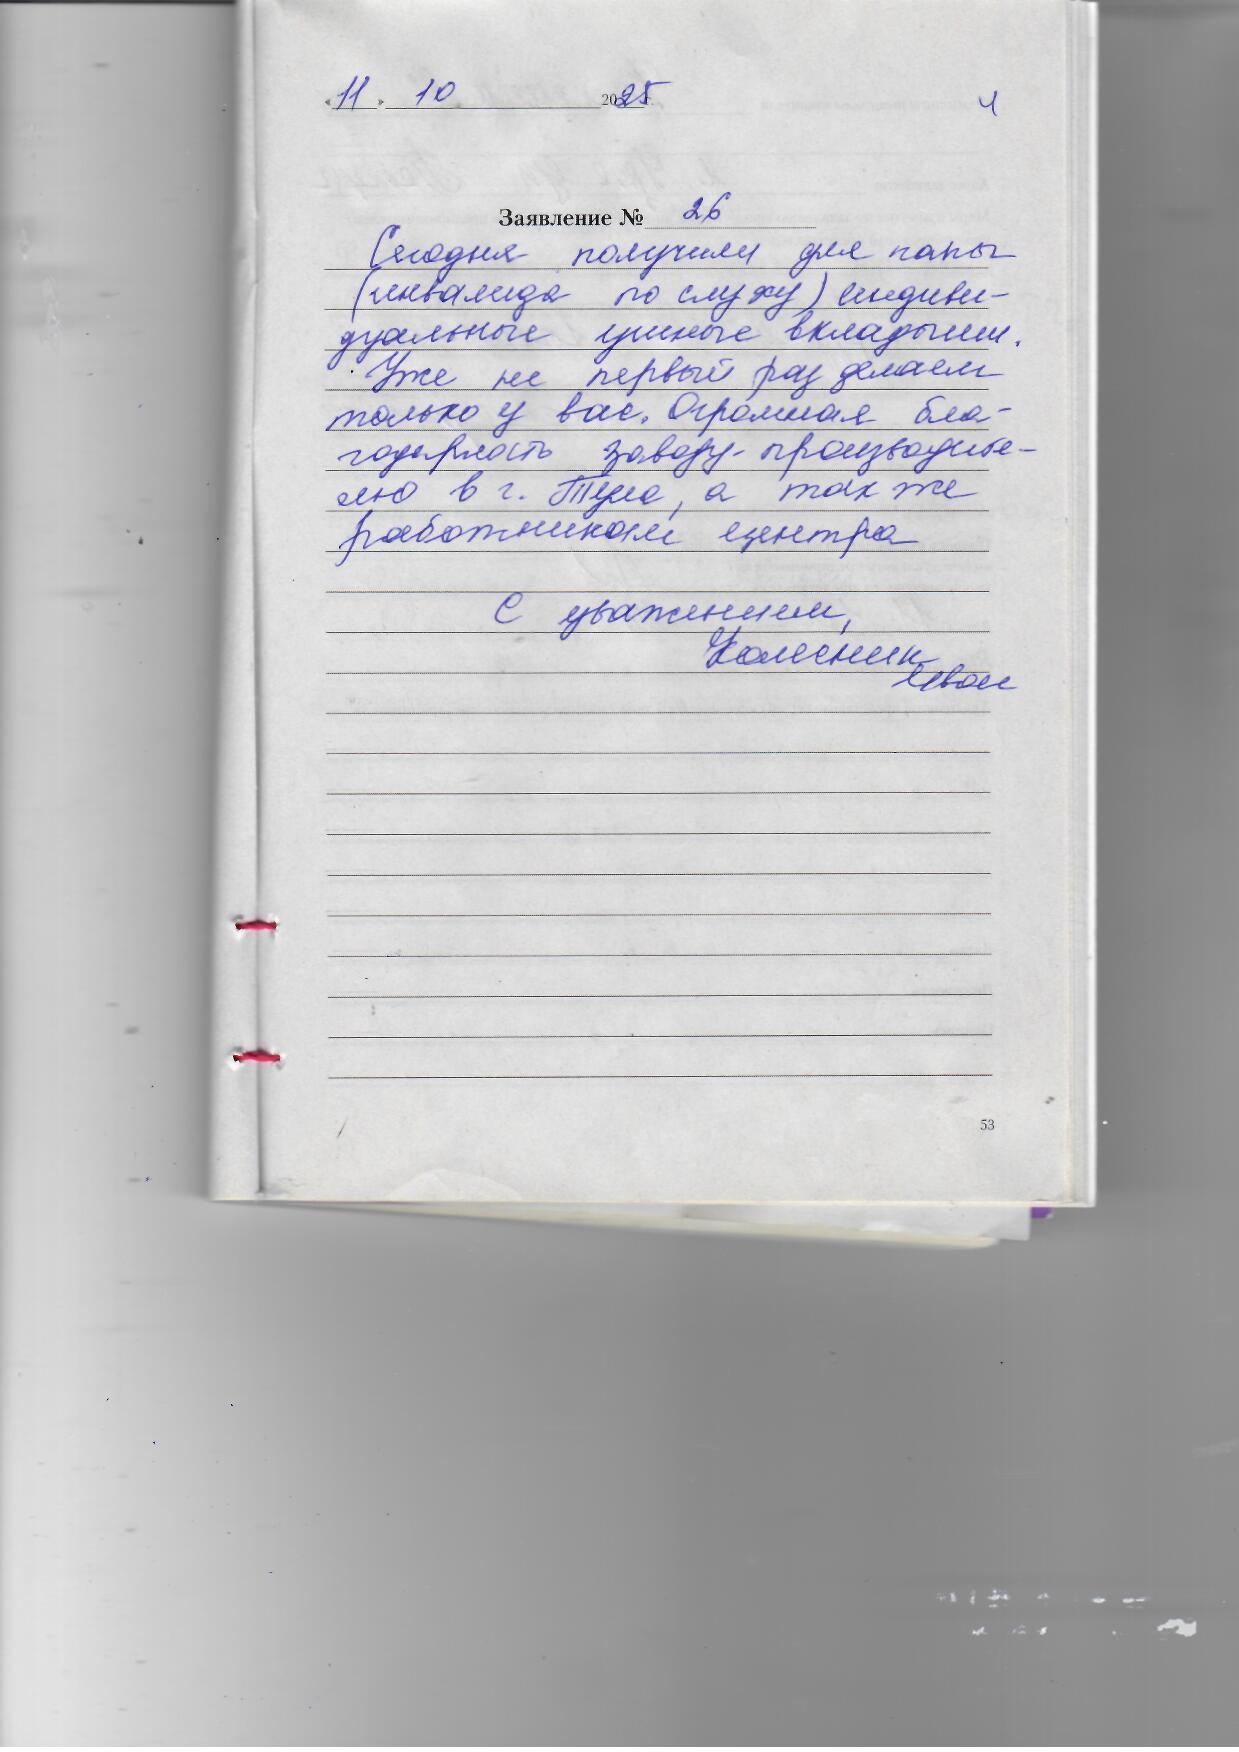 «11» 10 2025 г.
4
Заявление № 26
Сегодня получили для папы
(инвалида по слуху) индиви-
дуальные ушные вкладыши.
Уже не первый раз делаем
только у вас. Огромная бла-
годарность заводу-производите-
лю в г. Тула, а так же
работникам центра
С уважением,
Колесник
Иван
53